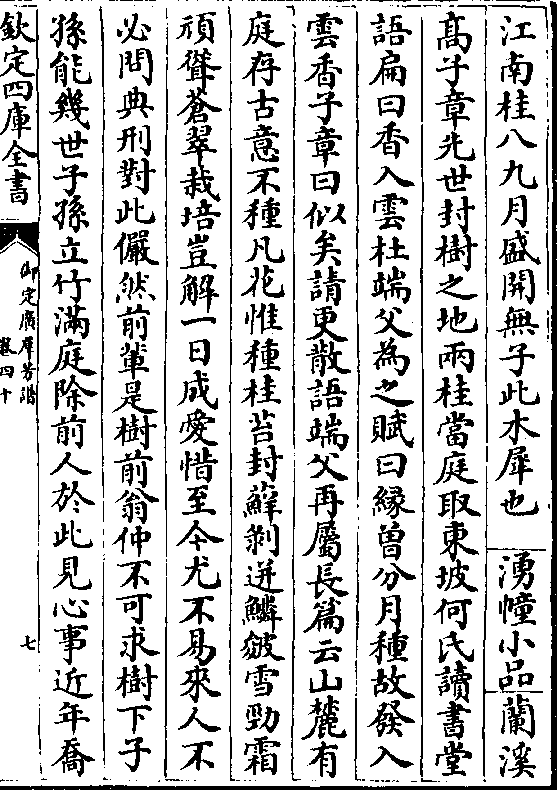 江南桂八九月盛開無子此木犀也 湧幢小品 蘭溪
髙子章先世封樹之地兩桂當庭取東坡何氏讀書堂
語扁曰香入雲杜端父為之賦曰緣曽分月種故發入
雲香子章曰似矣請更散語端父再屬長篇云山麓有
庭存古意不種凡花惟種桂苔封蘚剝迸鱗皴雪勁霜
頑聳蒼翠栽培豈解一日成愛惜至今尤不易來人不
必問典刑對此儼然前輩是樹前翁仲不可求樹下子
孫能幾世子孫立竹滿庭除前人於此見心事近年喬
欽定四庫全書
御定廣羣芳譜
卷四十
七